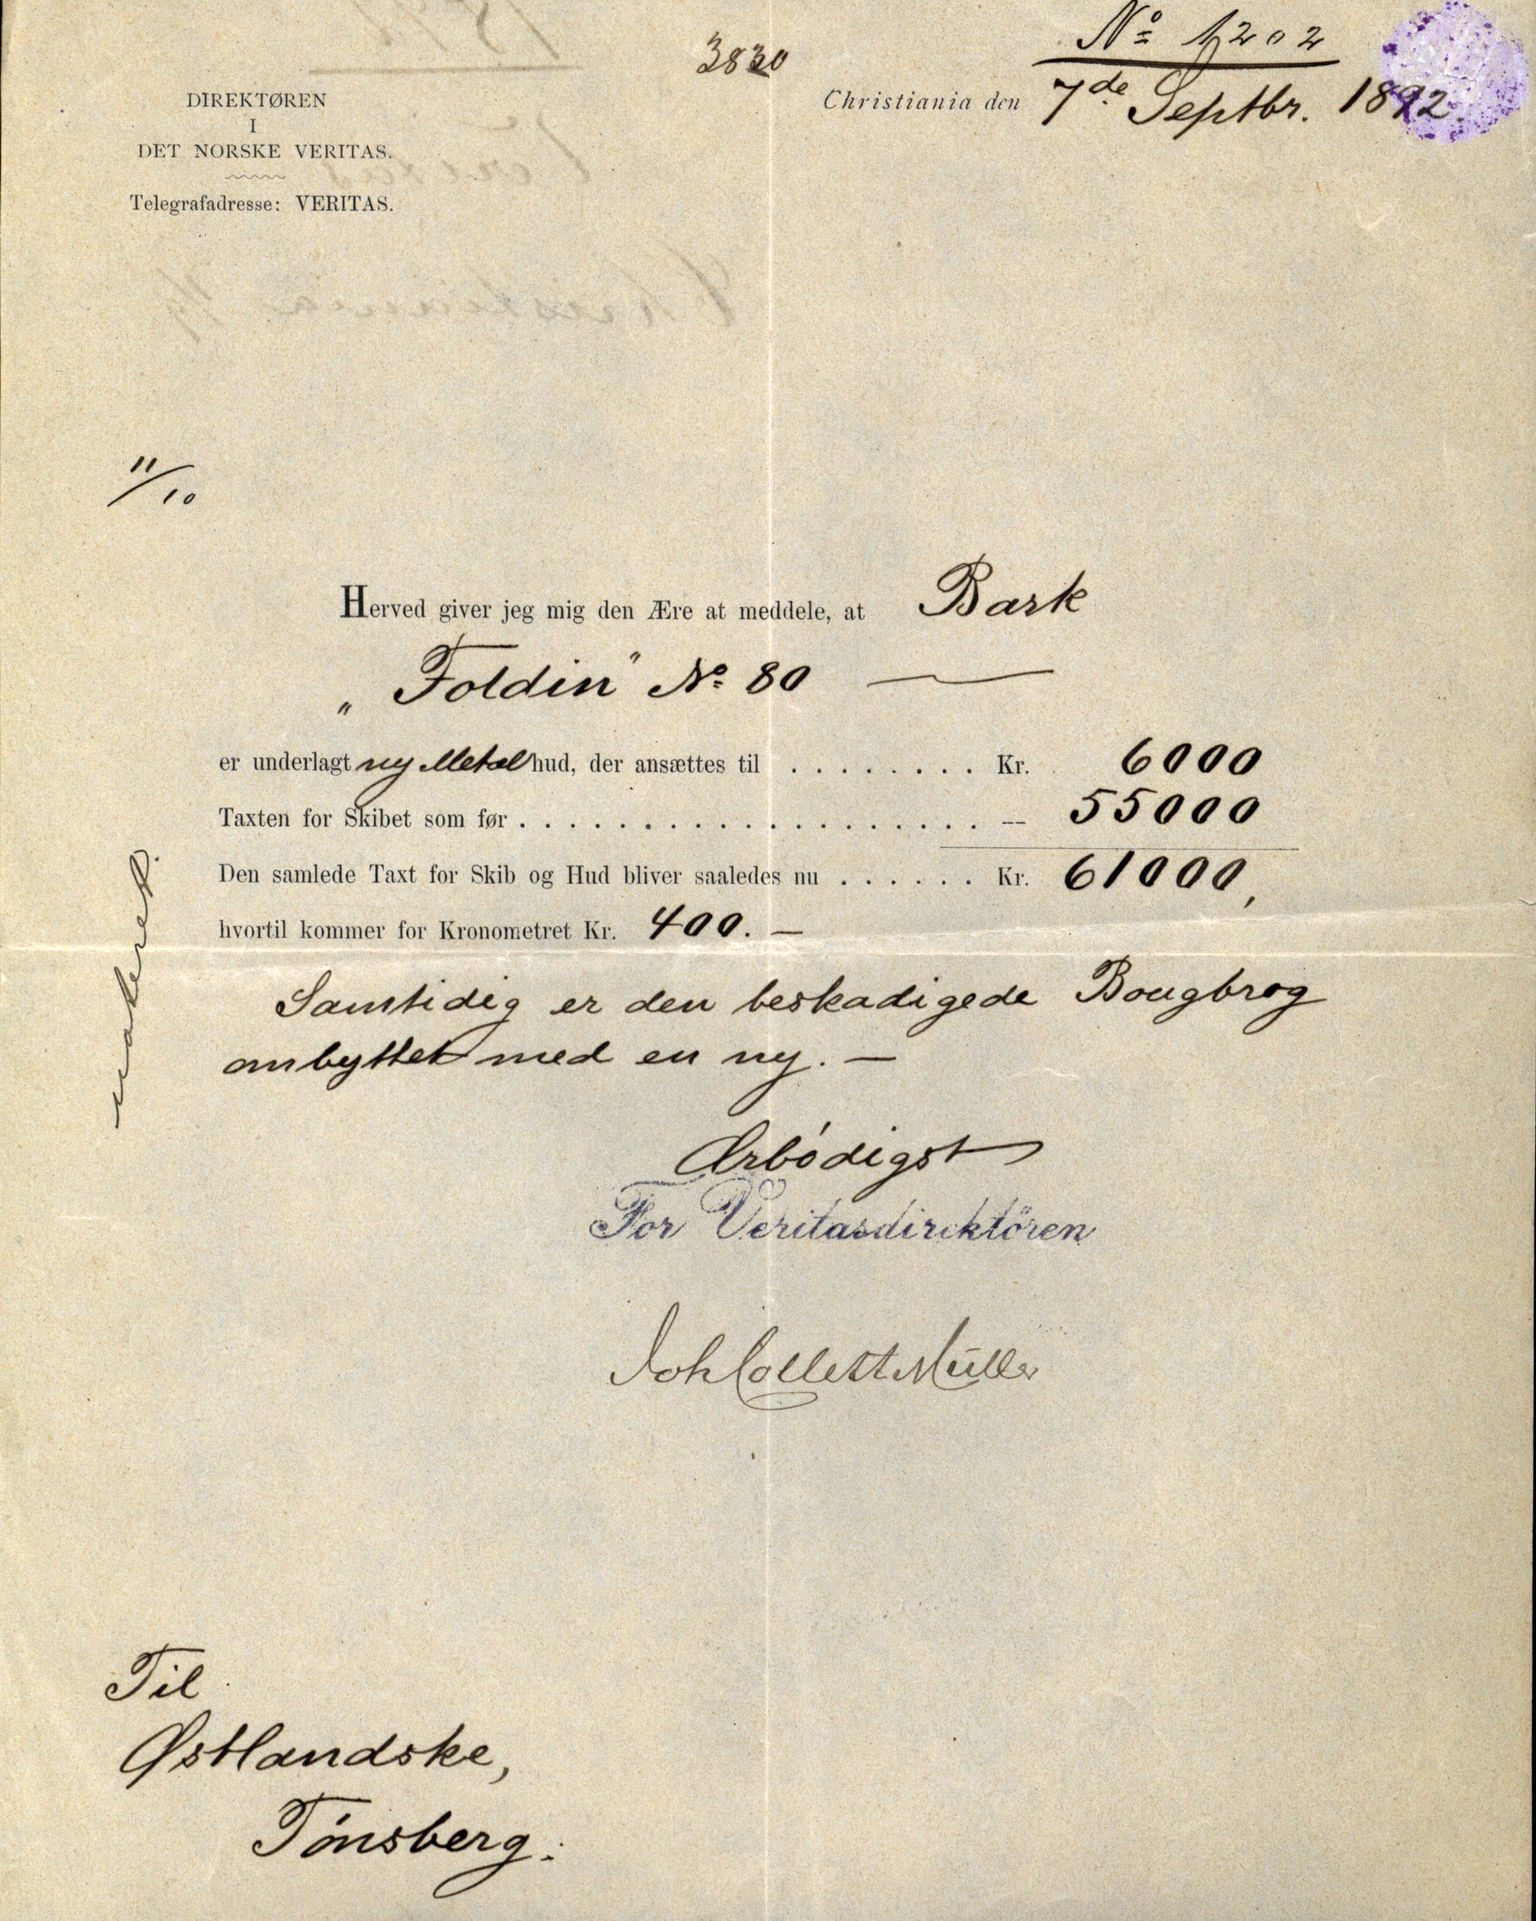 3830
Nº 1202
DIREKTØREN
I
DET NORSKE VERITAS.
Telegrafadresse: VERITAS.
Christiania den 7de Septbr. 1892.
11/10
Herved giver jeg mig den Ære at meddele, at Bark
„Foldin" Nº 80
er underlagt ny Metal hud, der ansættes til ........ Kr. 6000
Taxten for Skibet som før ................... — 55000
Den samlede Taxt for Skib og Hud bliver saaledes nu ...... Kr. 61000,
hvortil kommer for Kronometret Kr. 400. —
Samtidig er den beskadigede Bougbrog
ombyttet med en ny. —
noteret.
Ærbödigst
For Veritasdirektören
Joh Collett Müller
Til
Østlandske,
Tönsberg.